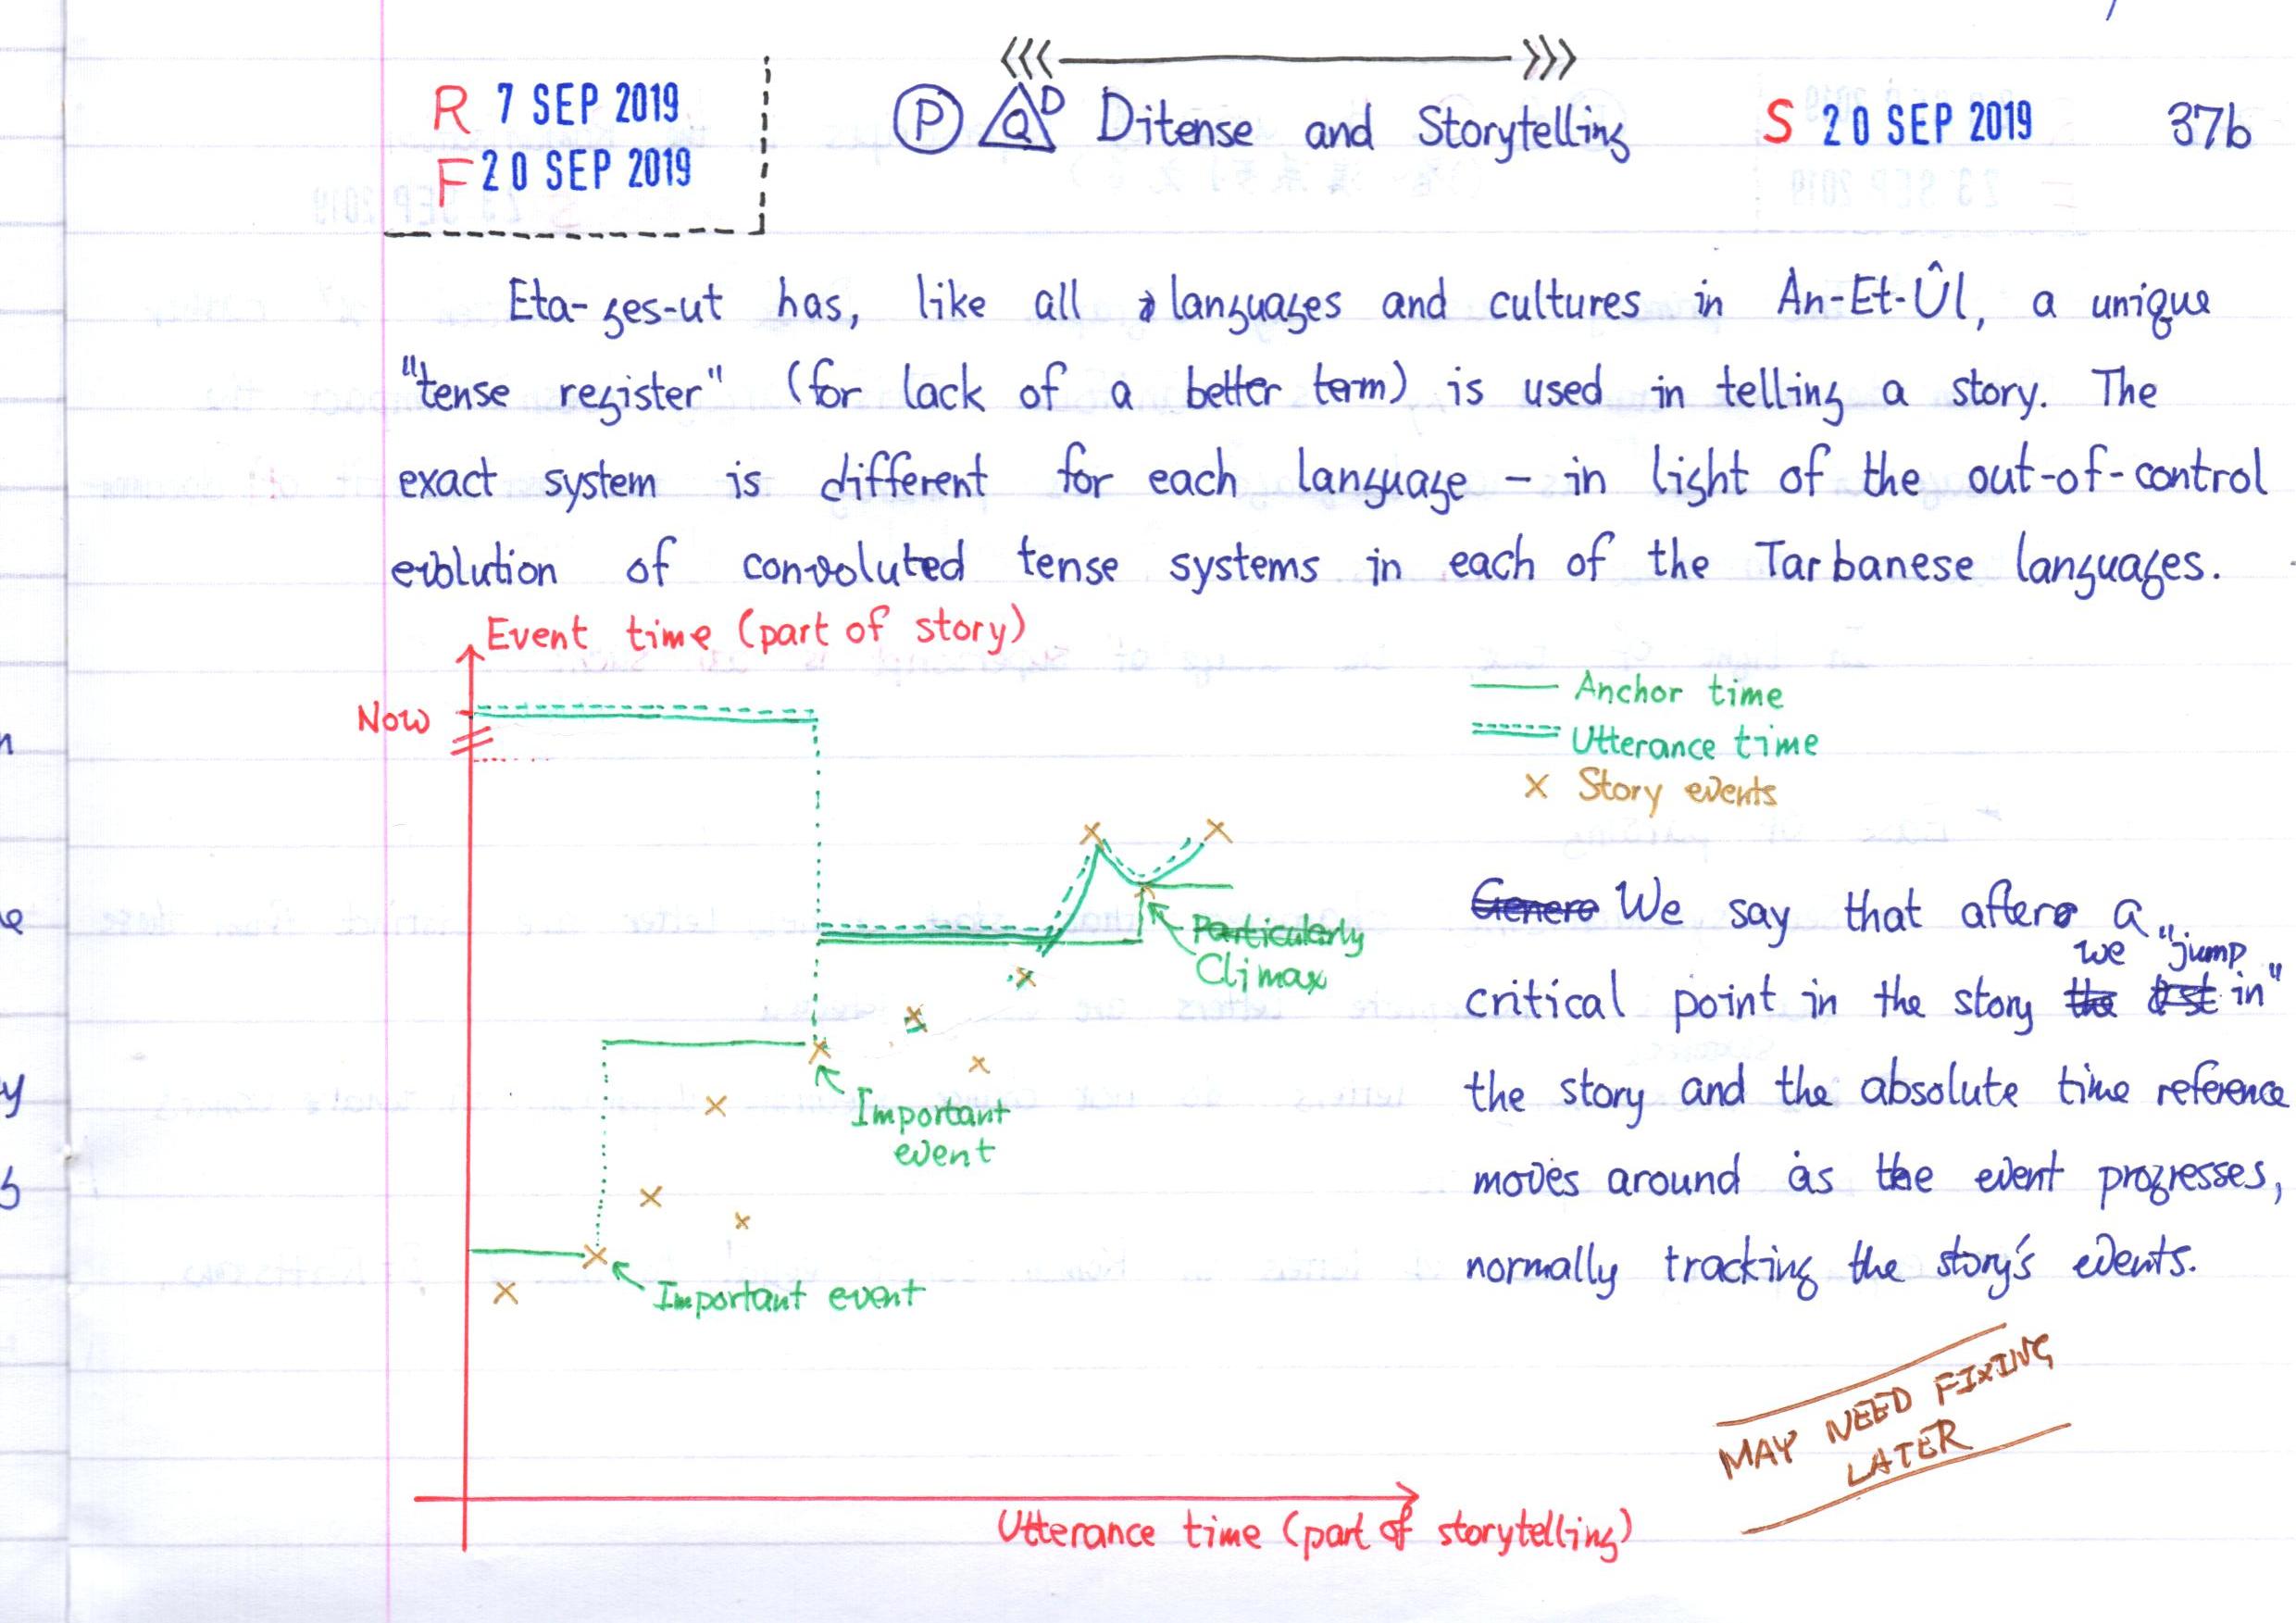 R 7 SEP 2019
F 20 SEP 2019
P Q D Ditense and Storytelling S 20 SEP 2019 37b
Eta-ges-ut has, like all languages and cultures in An-Et-Ûl, a unique
"tense register" (for lack of a better term) is used in telling a story. The
exact system is different for each language – in light of the out-of-control
evolution of convoluted tense systems in each of the Tarbanese languages.
Event time (part of story)
Now
Anchor time
Utterance time
Story events
Particularly
Climax
Important
event
Important event
Utterance time (part of storytelling)
Genere We say that after a
critical point in the story the we "jump in"
the story and the absolute time reference
moves around as the event progresses,
normally tracking the story's events.
MAY NEED FIXING
LATER